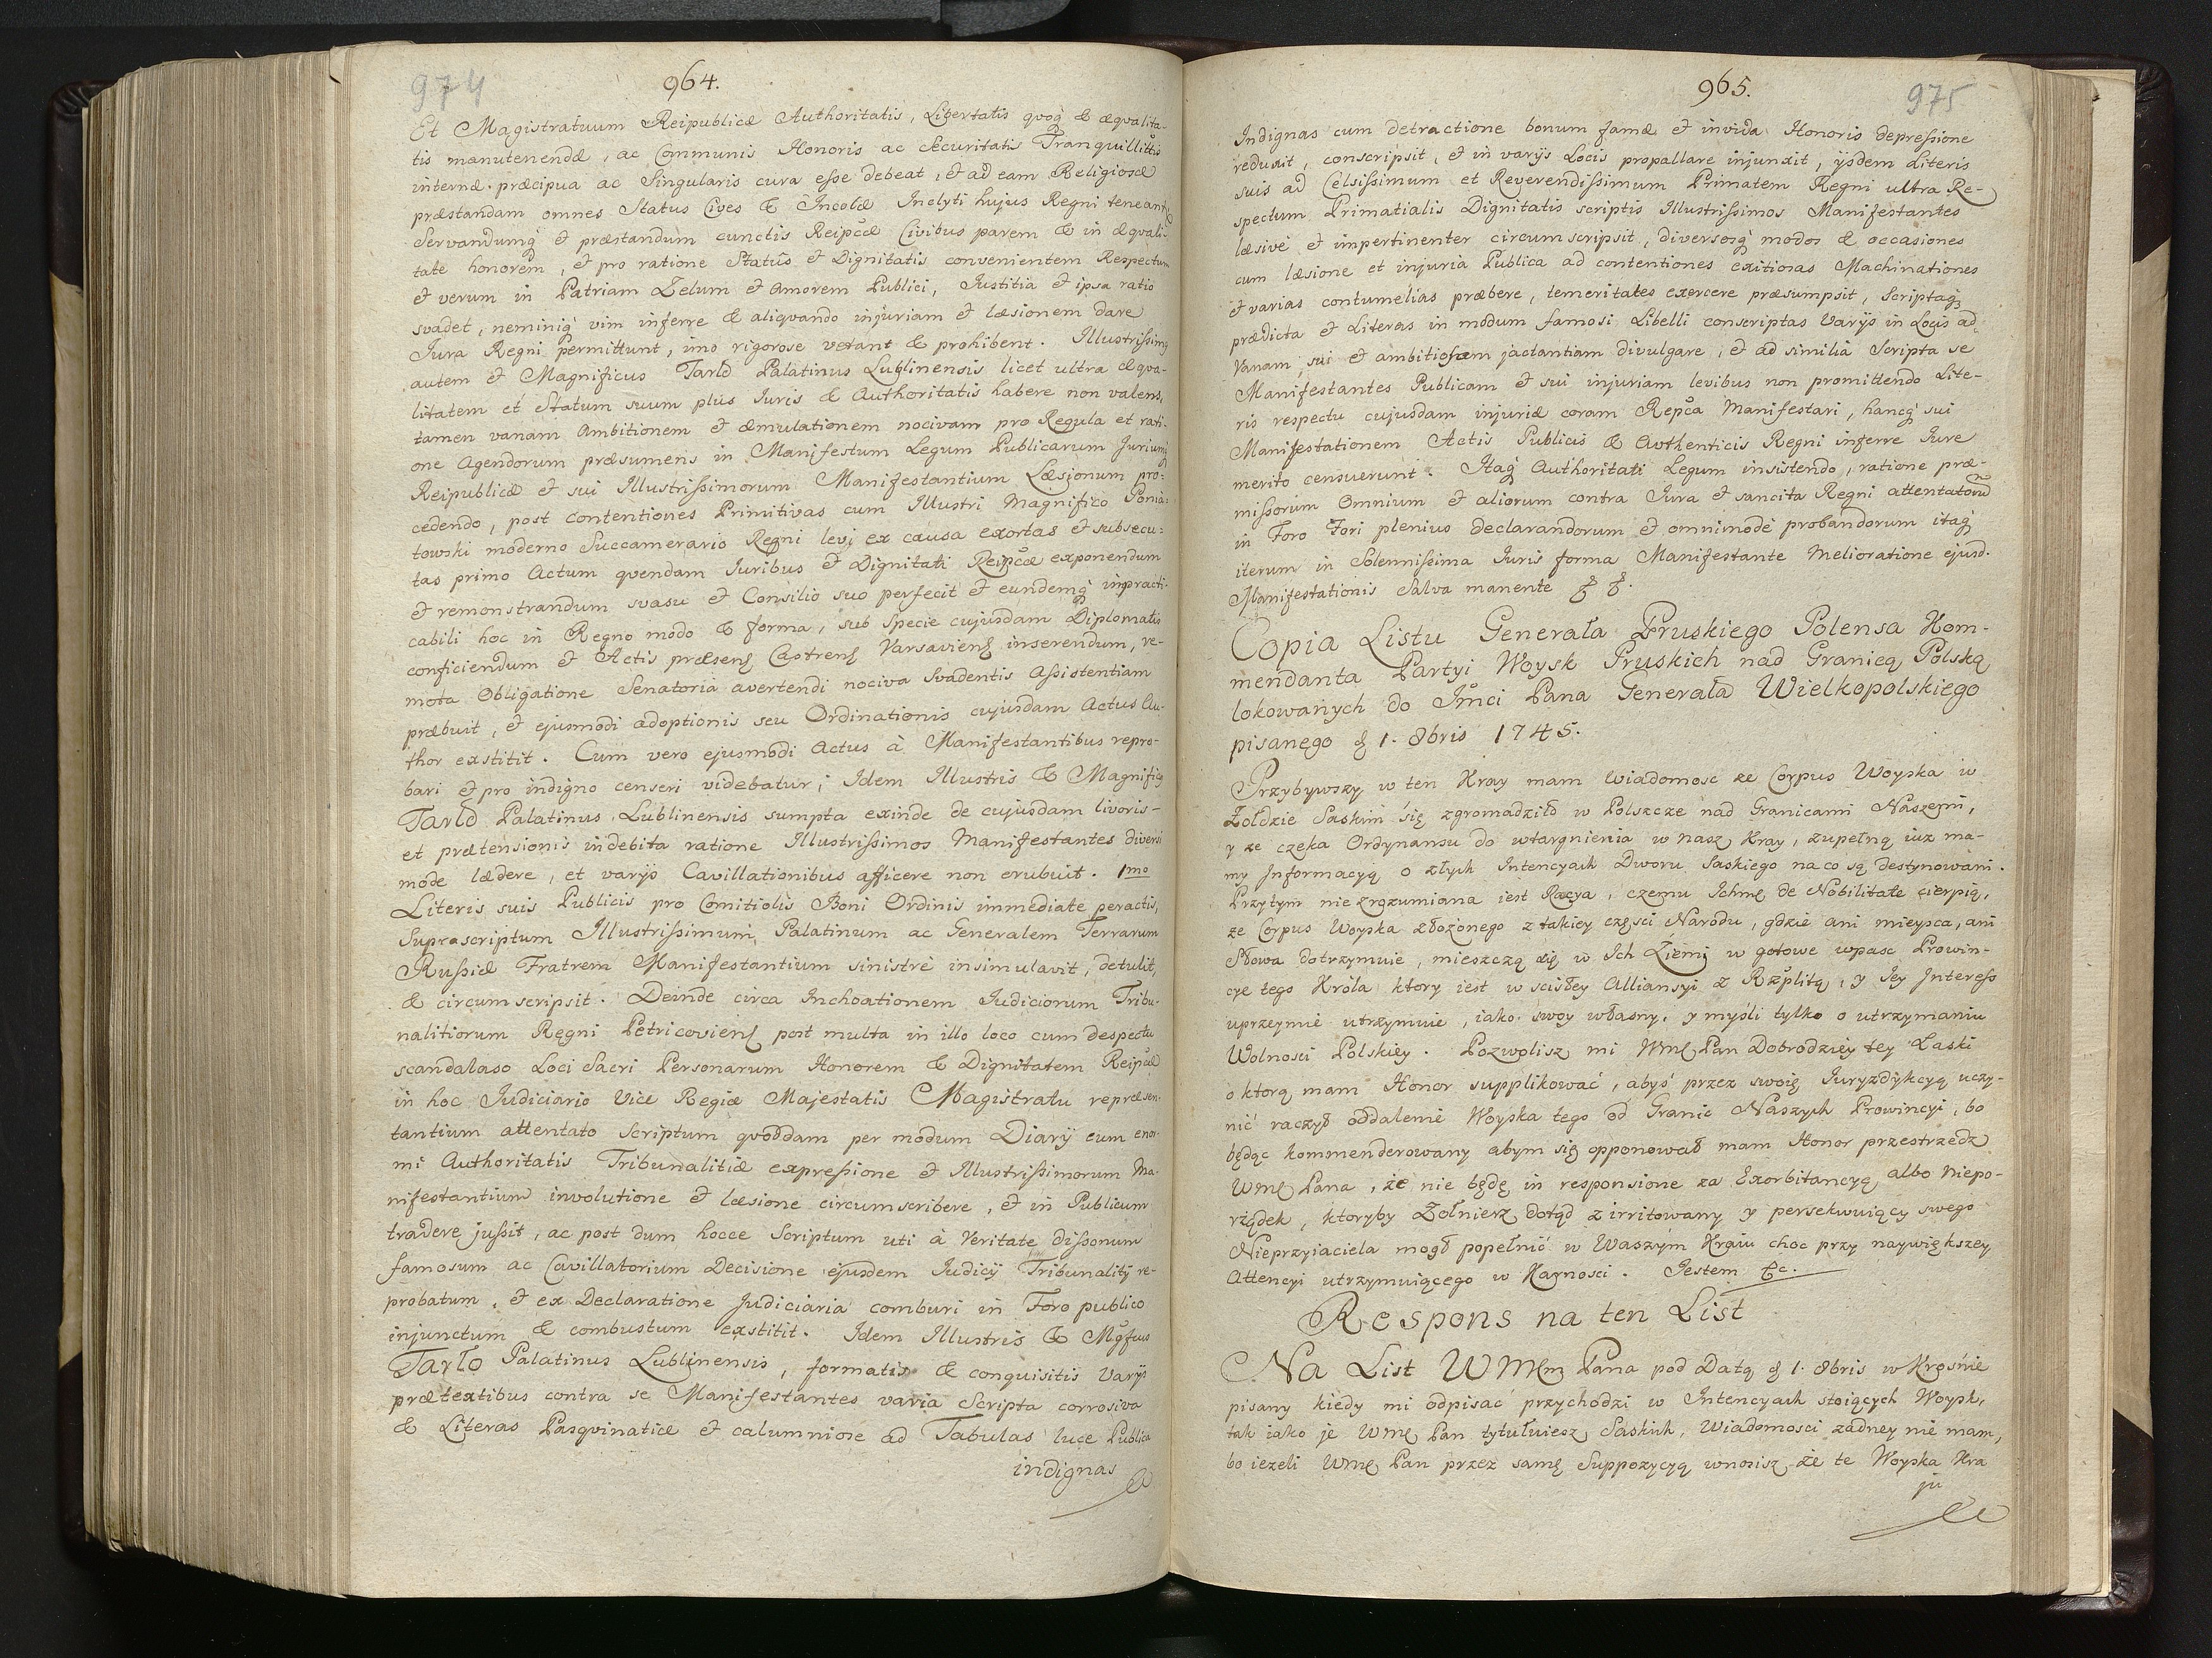 974
964.
Et Magistratuum Reipublicæ Authoritatis, Libertatis qvoq̃ & æqvalita-
tis manutenendæ, ac Communis Honoris ac Securitatis Tranquillittis
internæ præcipua ac Singularis cura esse debeat, & ad eam Religiosæ
præstandam omnes Status Cives & Incolæ Inclyti hujus Regni teneant
Servandumq̃ & præstandum cunctis Reipcæ Civibus parem & in æqvali-
tate honorem, & pro ratione Statûs & Dignitatis convenientem Respectum
& verum in Patriam Zelum & Amorem Publici, Justitia & ipsa ratio
svadet, neminiq̃ vim inferre & aliqvando injuriam & læsionem dare
Jura Regni permittunt, imo rigorose vetant & prohibent. Illustrissimg
autem & Magnificus Tarlo Palatinus Lublinensis licet ultra æqva-
litatem et Statum suum plus Juris & Authoritatis habere non valens,
tamen vanam Ambitionem & æmulationem nocivam pro Regula et rati-
one Agendorum præsumens in Manifestum Legum Publicarum Juriumq̃
Reipublicæ & sui Illustrissimorum Manifestantium Læsionum pro-
cedendo, post contentiones Primitivas cum Illustri Magnifico Ponia-
towski moderno Succamerario Regni levi ex causa exortas & subsecu-
tas primo Actum qvendam Juribus & Dignitati Reipcæ exponendum
& remonstrandum svasu & Consilio suo perfecit & eundemq̃ impracti-
cabili hoc in Regno modo & forma, sub specie cujusdam Diplomatis
conficiendum & Actis præsens Castrens Varsaviens inserendum, re-
mota Obligatione Senatoria avertendi nociva Svadentis Assistentiam
præbuit, & ejusmodi adoptionis seu Ordinationis cujusdam Actus Au-
thor exstitit. Cum vero ejusmodi Actus à Manifestantibus repro-
bari & pro indigno censeri videbatur; Idem Illustris & Magnificg
Tarlo Palatinus Lublinensis sumpta exinde de cujusdam livoris
et prætensionis indebita ratione Illustrissimos Manifestantes diversi
mode lædere, et varijs Cavillationibus afficere non erubuit. 1mo
Literis suis Publicis pro Comitiolis Boni Ordinis immediate peractis,
Suprascriptum Illustrissimum Palatinum ac Generalem Terrarum
Russiæ Fratrem Manifestantium sinistrè insimulavit, detulit,
& circumscripsit. Deinde circa Inchoationem Judiciorum Tribu-
nalitiorum Regni Petricoviens post multa in illo loco cum despectu
scandaloso Loci Sacri Personarum Honorem & Dignitatem Reipcæ
in hoc Judiciario Vice Regiæ Majestatis Magistratu repræsen-
tantium attentato Scriptum qvoddam per modum Diarÿ cum enor-
mi Authoritatis Tribunalitiæ expressione & Illustrissimorum Ma-
nifestantium involutione & læsione circumscribere, & in Publicum
tradere jussit, ac post dum hocce Scriptum uti à Veritate dissonum
famosum ac Cavillatorium Decisione ejusdem Judicÿ Tribunalitÿ re-
probatum, & ex Declaratione Judiciaria comburi in Foro publico
injunctum & combustum exstitit. Idem Illustris & Mgfcus
Tarlo Palatinus Lublinensis, formatis & conquisitis Varijs
prætextibus contra se Manifestantes varia Scripta corrosiva
& Literas Pasqvinatice & calumniose ad Tabulas luce Publica
indignas
965.
975
Indignas cum detractione bonum famæ & invida Honoris depressione
reduxit, conscripsit, & in varÿs Locis propallare injunxit, ÿsdem Literis
suis ad Celsissimum et Reverendissimum Primatem Regni ultra Re-
spectum Primatialis Dignitatis scriptis Illustrissimos Manifestantes
læsivè & impertinenter circumscripsit, diversosq̃ modos & occasiones
cum læsione et injuria Publica ad contentiones exitiosas Machinationes
& varias contumelias præbere, temeritates exercere præsumpsit, Scriptaq̃
prædicta & Literas in modum famosi Libelli conscriptas Varÿs in Locis ad
Vanam sui & ambitiosam jactantiam divulgare, & ad similia Scripta se
Manifestantes Publicam & sui injuriam levibus non promittendo Lite-
ris respectu cujusdam injuriæ coram Repca Manifestari, hancq̃ sui
Manifestationem Actis Publicis & Avthenticis Regni inferre Jure
merito censuerunt. Itaq̃ Authoritati Legum insistendo, ratione præ-
missorum Omnium & aliorum contra Jura & sancita Regni attentatorũ
in Foro Fori plenius declarandorum & omnimodè probandorum itaq̃
iterum in Solennissima Juris forma Manifestante Melioratione ejusd.
Manifestationis Salva manente
Copia Listu Generała Pruskiego Polensa Kom-
mendanta Partyi Woysk Pruskich nad Granicą Polską
lokowanych do Jmci Pana Generała Wielkopolskiego
pisanego d 1. 8bris 1745.
Przybywszy w ten Kray mam Wiadomosc ze Corpus Woyska w
Żołdzie Saskim się zgromadziło w Polszcze nad Granicami Naszemi,
y ze czeka Ordynansu do wtargnienia w nasz Kray, zupełną iuz ma-
my Informacyą o złych Intencyach Dworu Saskiego na co są destynowani.
Przytym niezrozumiana iest Racya, czemu Ichmę de Nobilitate cierpią,
ze Corpus Woyska złożonego z takiey części Narodu, gdzie ani mieysca, ani
Słowa dotrzymuie, mieszczą się w Ich Ziemi w gotowe wpasc Prowin-
cye tego Króla ktory iest w scisłey Alliansyi z Rzplitą, y Jey Interess
uprzeymie utrzymuie, iako swoy własny, y myśli tylko o utrzymaniu
Wolnosci Polskiey. Pozwolisz mi Wmę Pan Dobrodziey tey Łaski
o ktorą mam Honor supplikować, abyś przez swoię Juryzdykcyą uczy-
nić raczył oddalenie Woyska tego od Granic Naszych Prowincyi, bo
będąc kommenderowany abym się opponował mam Honor przestrzedz
Wmę Pana, że nie będę in responsione za Exorbitancyą albo niepo-
rządek, ktoryby Zołnierz dotąd zirritowany y persekwuiący swego
Nieprzyiaciela mogł popełnić w Waszym Kraiu choc przy naywiększey
Attencyi utrzymuiącego w Karnosci. Jestem &c.
Respons na ten List
Na List WMęm Pana pod Datą d 1. 8bris w Krośnie
pisany kiedy mi odpisac przychodzi w Intencyach stoiących Woysk,
tak iako je Wmę Pan tytułuiesz Saskich, Wiadomosci zadney nie mam,
bo iezeli Wmę Pan przez samę Suppozycyą wnosisz że te Woyska Kra
ju